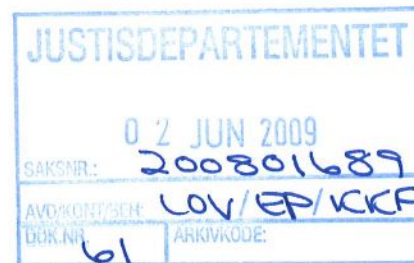 JUSTISDEPARTEMENTET
02 JUN 2009
SAKSNR.: 200801689
AVD/KONT/BEH: LOV/EP/KKF
DOK.NR. 61 ARKIVKODE: